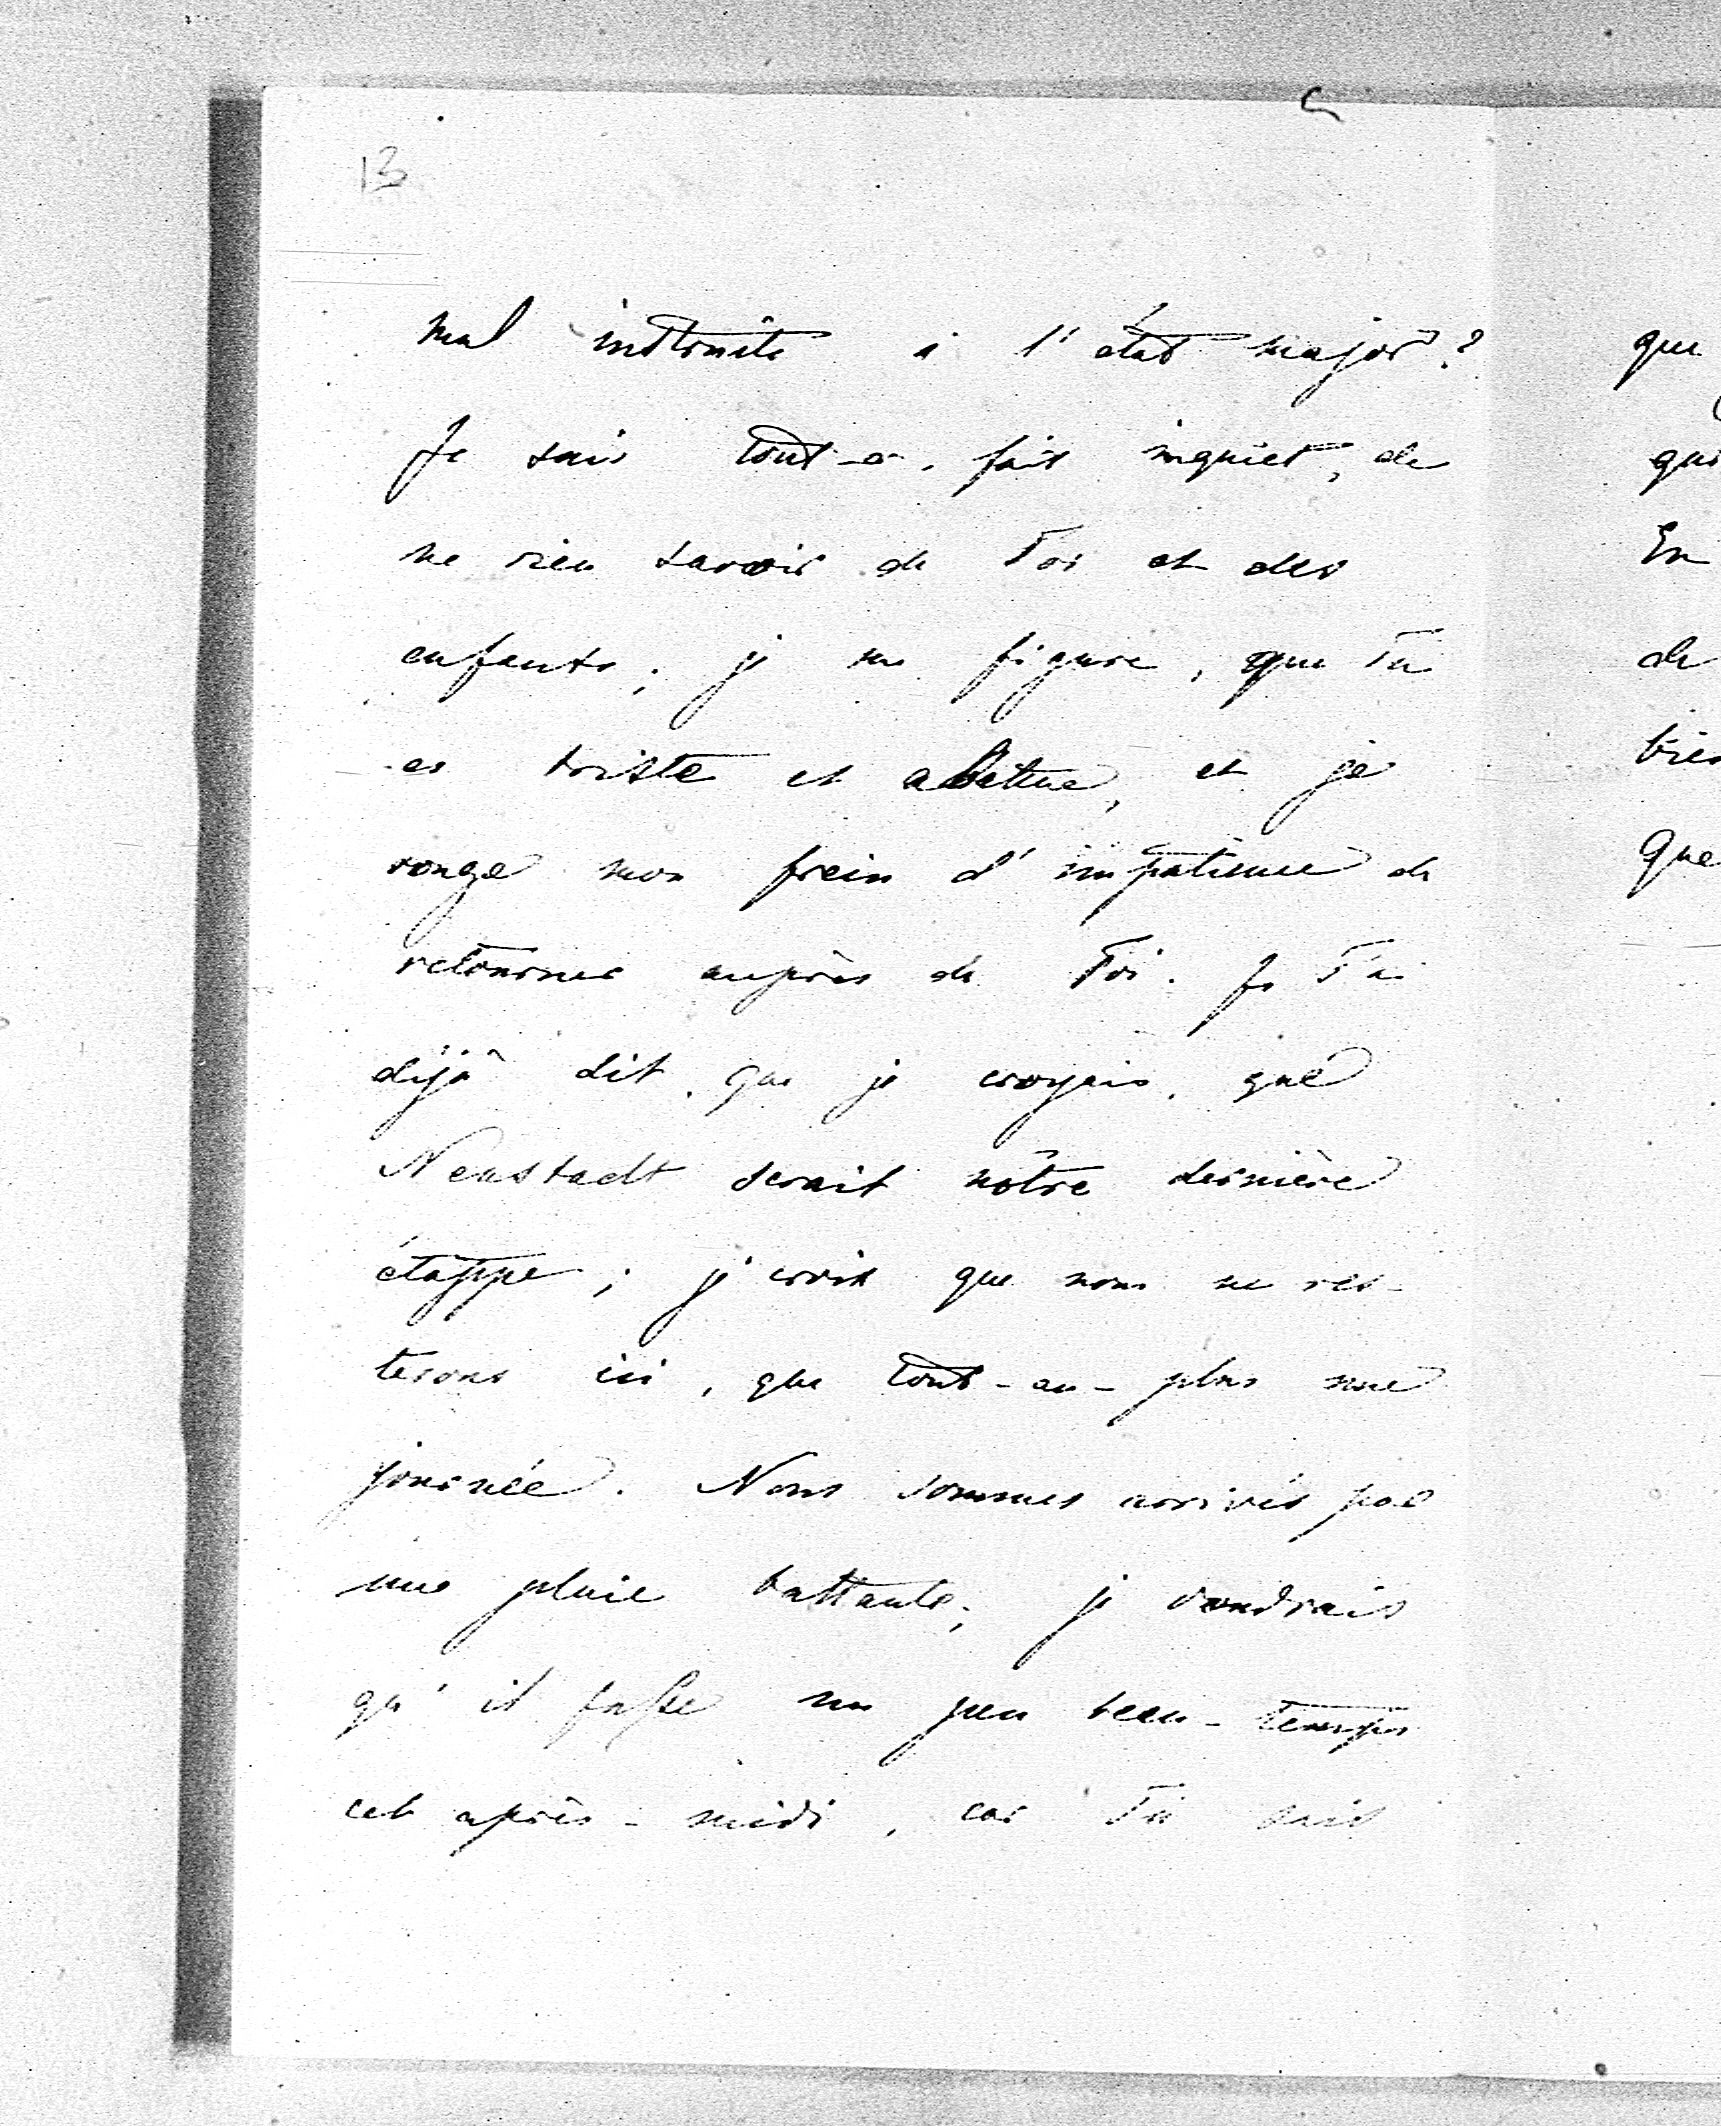 13
mal instruits à l'état major?
Je suis tout-à-fait inquiet, de
ne rien savoir de Toi et des
enfants; je me figure, que Tu
es triste et abattue, et je
ronge mon frein d'impatience de
retourner auprès de Toi. Je T'ai
déjà dit, que je croyais, que
Neustadt serait nôtre dernière
étappe; je crois que nous ne res-
terons ici, que tout-au-plus une
journée. Nous sommes arrivés par
une pluie battante; je voudrais
qu'il fasse un peu beau-temps
cet après-midi, car Tu sais
que
qui
En
de
bien
que